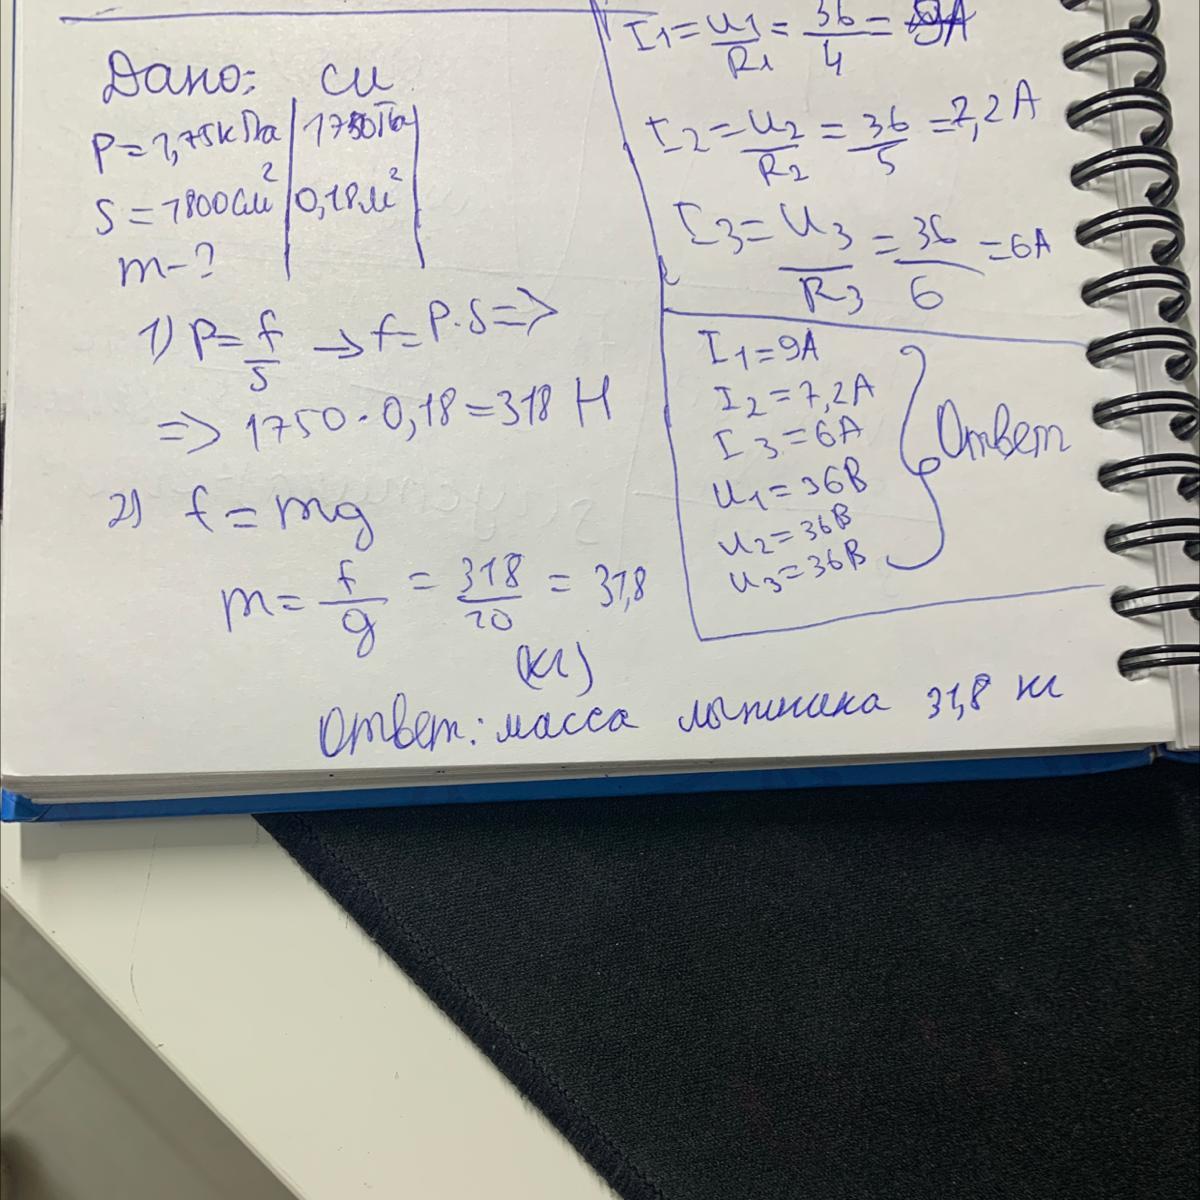 Дано: си
P=1,75кПа | 1750Па
S=1800см² | 0,18м²
m-?
1) P=f/s → f=P·S=>
=> 1750·0,18=318 Н
2) f=mg
m=f/g=318/10=31,8
(кг)
Ответ: масса лыжника 31,8 кг
I1=U1/R1=36/4=9A
I2=U2/R2=36/5=7,2A
I3=U3/R3=36/6=6A
I1=9A
I2=7,2A
I3=6A
U1=36В
U2=36В
U3=36В
Ответ